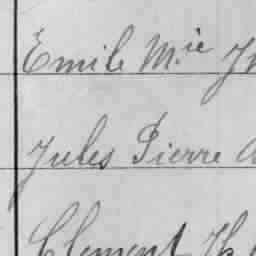 Emile M.ie
Jules Pierre
Clement